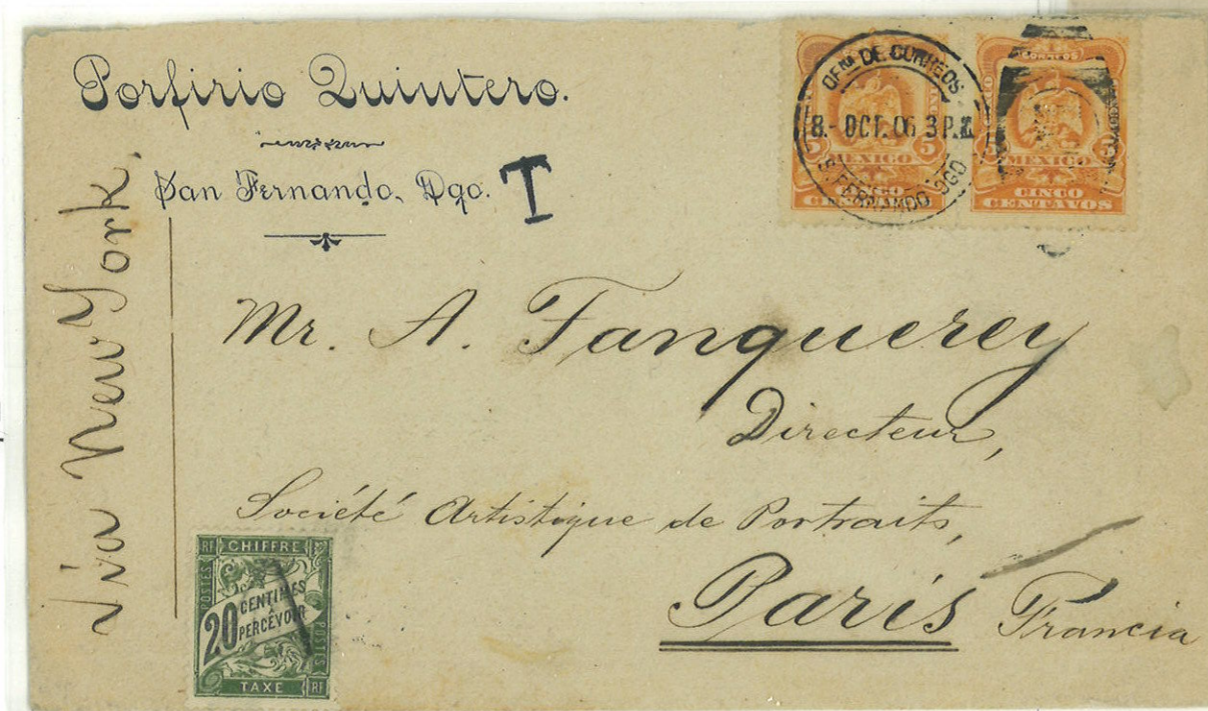 Porfirio Quintero.
San Fernando, Dgo.
T
OFNA DE CORREOS
8.- OCT. 06 3 P.M.
S. FERNANDO DGO
5 5
MEXICO
CINCO
CENTAVOS
CORREOS
5
MEXICO
CINCO
CENTAVOS
Via New York.
Mr. A. Fanquerey
Directeur,
Société Artistique de Portraits,
Paris Francia
RF CHIFFRE
POSTES
20 CENTIMES
À
PERCEVOIR
POSTES
TAXE RF